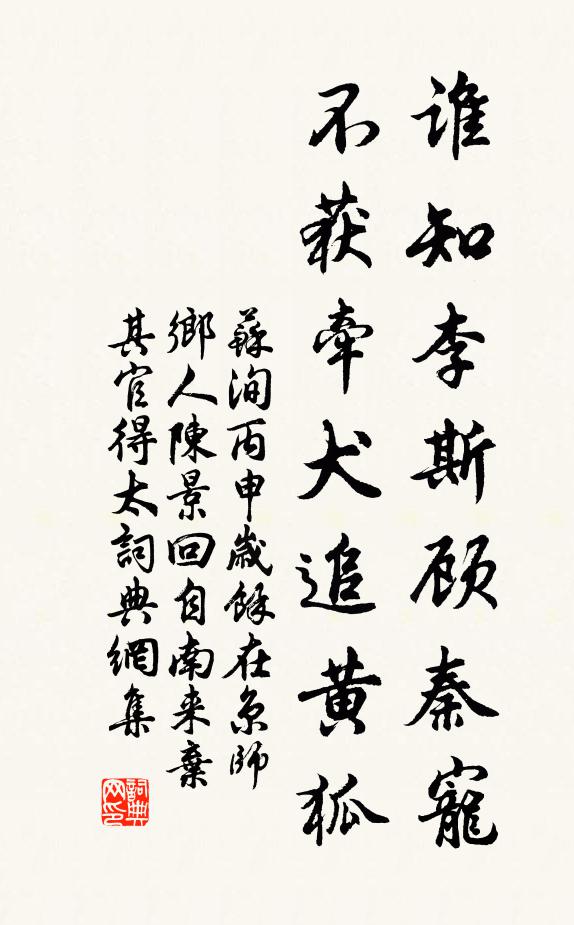 谁知李斯顾秦寵
不获牽犬追黄狐
蘇洵丙申歲餘在京師
鄉人陳景回自南来棄
其官得太詞典網集
詞典网印